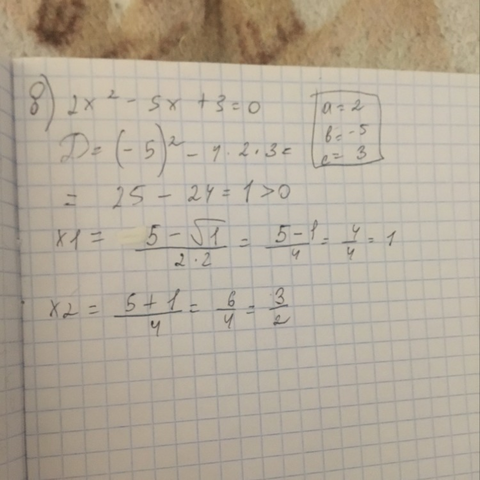 в) 2x² - 5x + 3 = 0
a = 2
b = -5
c = 3
D = (-5)² - 4 · 2 · 3 =
= 25 - 24 = 1 > 0
x1 = (5 - √1)/(2·2) = (5-1)/4 = 4/4 = 1
x2 = (5+1)/4 = 6/4 = 3/2